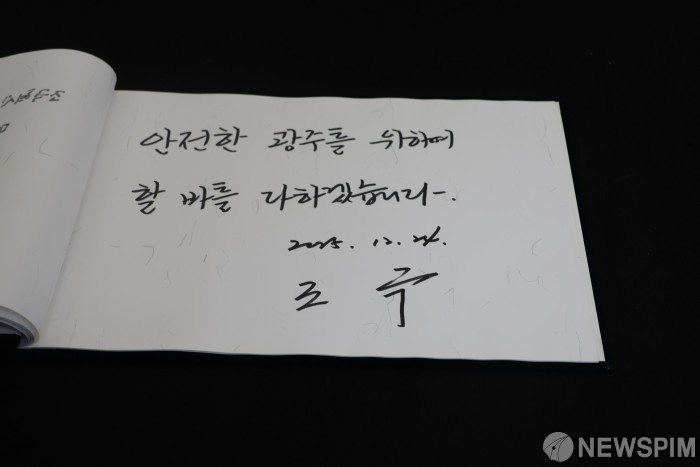 안전한 광주를 위하여
할 바를 다하겠습니다.
2025. 12. 24.
조 국
NEWSPIM